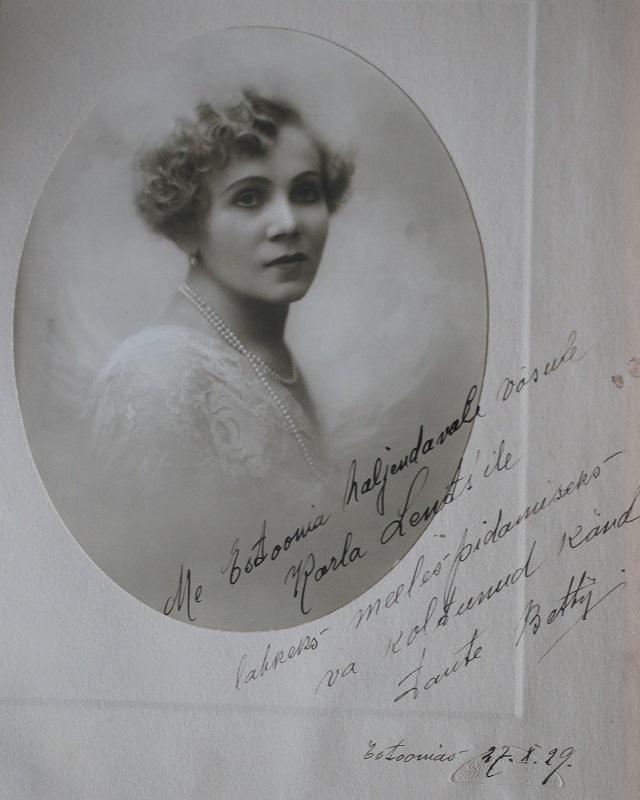 Me Estoonia haljendavale võsule
Karla Lenits'ile
lahkeks meeles-pidamiseks-
va koltunud känd
tante Betty.
Estoonias- 27. X. 29.